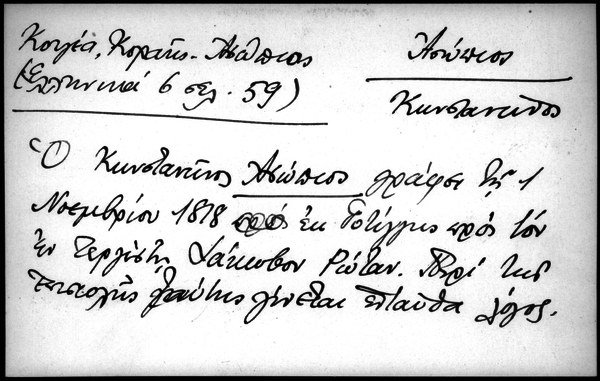 Κουγέα, Κοραῆς - Ἀσώπιος
(Ἑλληνικά 6 σελ. 59)
Ἀσώπιος
Κωνσταντῖνος
Ὁ Κωνσταντῖνος Ἀσώπιος γράφει τῇ 1
Νοεμβρίου 1818 ἐκ Γοτίγγης πρός τόν
ἐν Τεργέστῃ Ἰάκωβον Ρώταν. Περί τῆς
ἐπιστολῆς ταύτης γίνεται ἐνταῦθα λόγος.